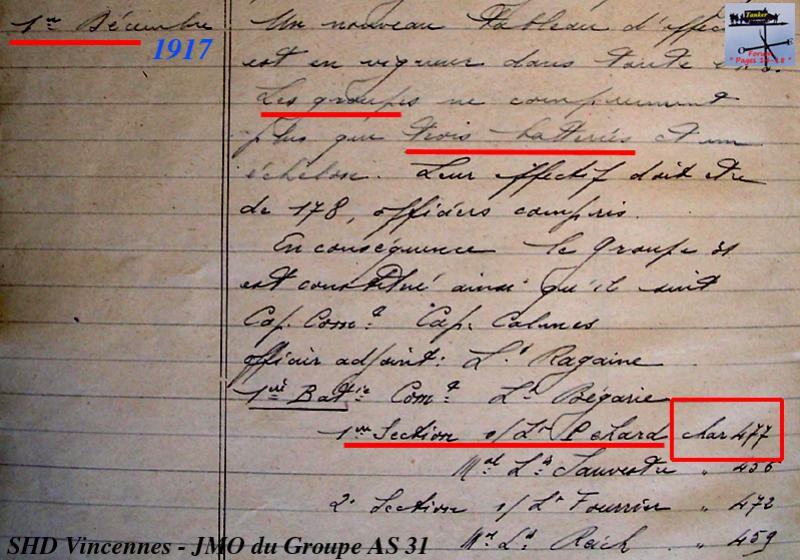 1er Décembre
1917
Un nouveau tableau d'effec
est en vigueur dans toute
Les groupes ne comprennent
plus que trois batteries et un
échelon. Leur effectif doit être
de 178, officiers compris.
En conséquence le Groupe 31
est constitué ainsi qu'il suit
Cap. Comt Cap. Calmes
officier adjoint: Lt Ragaine
1ère Batie Comt Lt Bégarie
1ère Section s/Lt Pehard char 477
Mal Lis Sauvestre " 456
2e Section s/Lt Fourrier " 472
Mal Lis Reich " 459
SHD Vincennes - JMO du Groupe AS 31
Tanker
Forum
" Pages 14-18 "